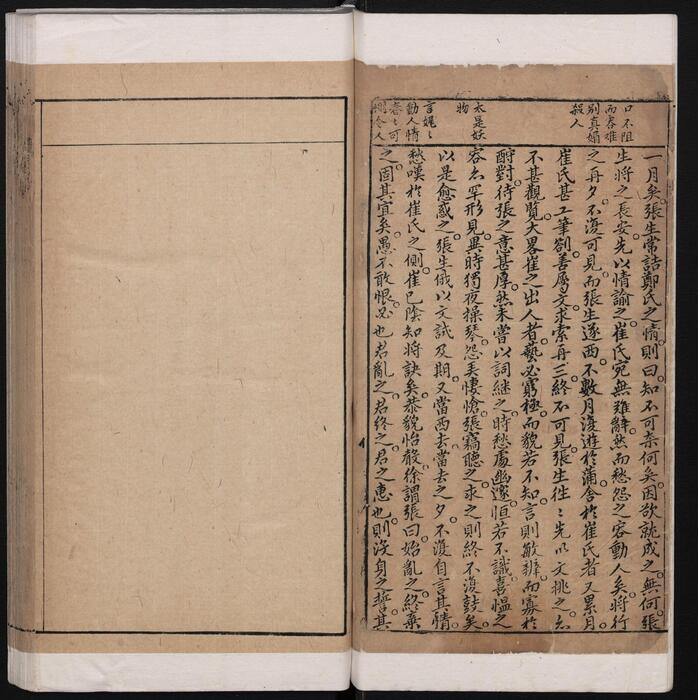 口不阻
而容難
別真媚
殺人
太是妖
物
言娓〻
動人情
〻可
令人
一月矣張生常詰鄭氏之情則曰知不可柰何矣因欲就成之無何張
生將之長安先以情諭之崔氏宛無難辭然而愁怨之容動人矣將行
之再夕不復可見而張生遂西不數月復遊於蒲舍於崔氏者又累月
崔氏甚工筆劄善屬文求索再三終不可見張生往〻先以文挑之亦
不甚觀覽大畧崔之出人者藝必窮極而貌若不知言則敏辨而寡於
酬對待張之意甚厚然未嘗以詞継之時愁處幽邃恒若不識喜慍之
容亦罕形見異時獨夜操琴怨弄悽愴張竊聽之求之則終不復鼓矣
以是愈惑之張生俄以文試及期又當西去當去之夕不復自言其情
愁嘆於崔氏之側崔已陰知將訣矣恭貌怡聲徐謂張曰始亂之終棄
之固其宜矣愚不敢恨必也君亂之君終之君之惠也則沒身之誓其